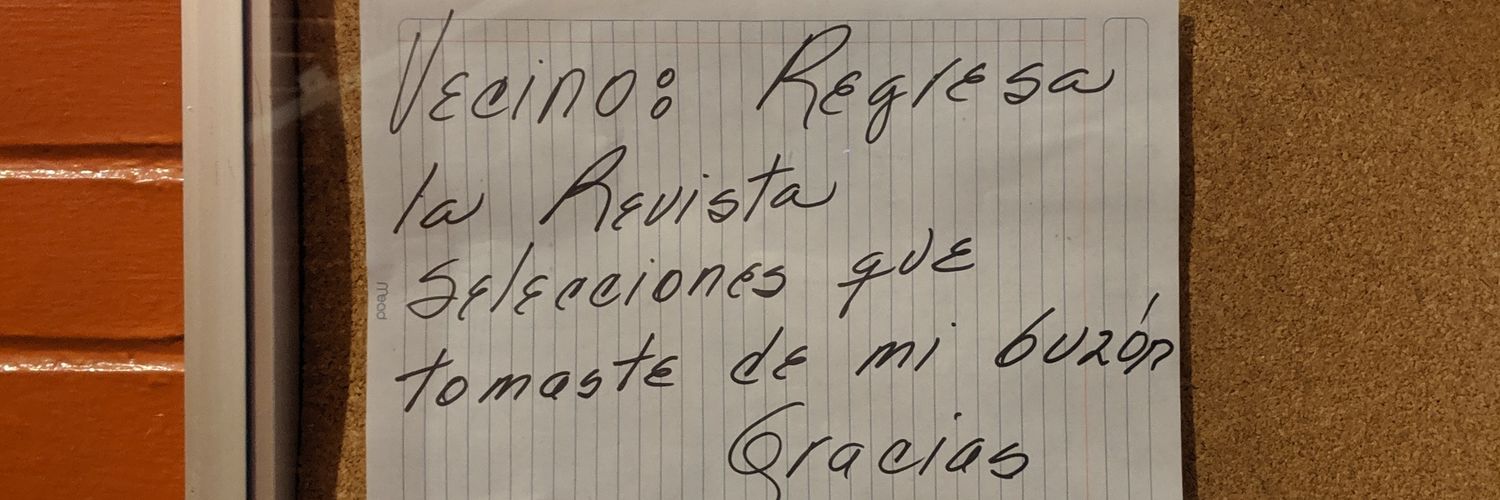 Vecino: Regresa
la Revista
Selecciones que
tomaste de mi buzón
Gracias
mead